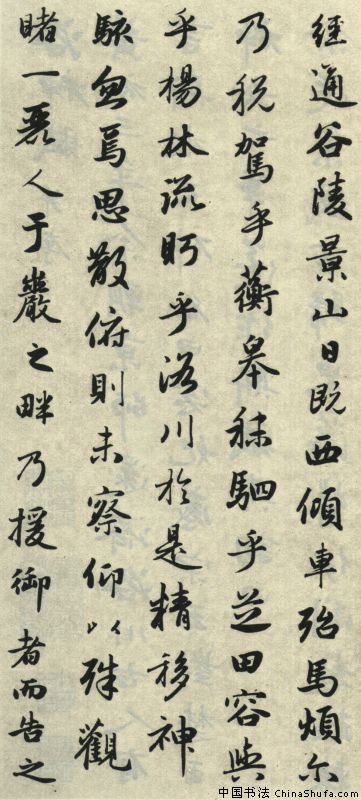 經通谷陵景山日既西傾車殆馬煩尔
乃税駕乎蘅皋秣駟乎芝田容與
乎楊林流眄乎洛川於是精移神
駭忽焉思散俯則未察仰以殊觀
睹一麗人于巖之畔乃援御者而告之
中国书法 ChinaShufa.com